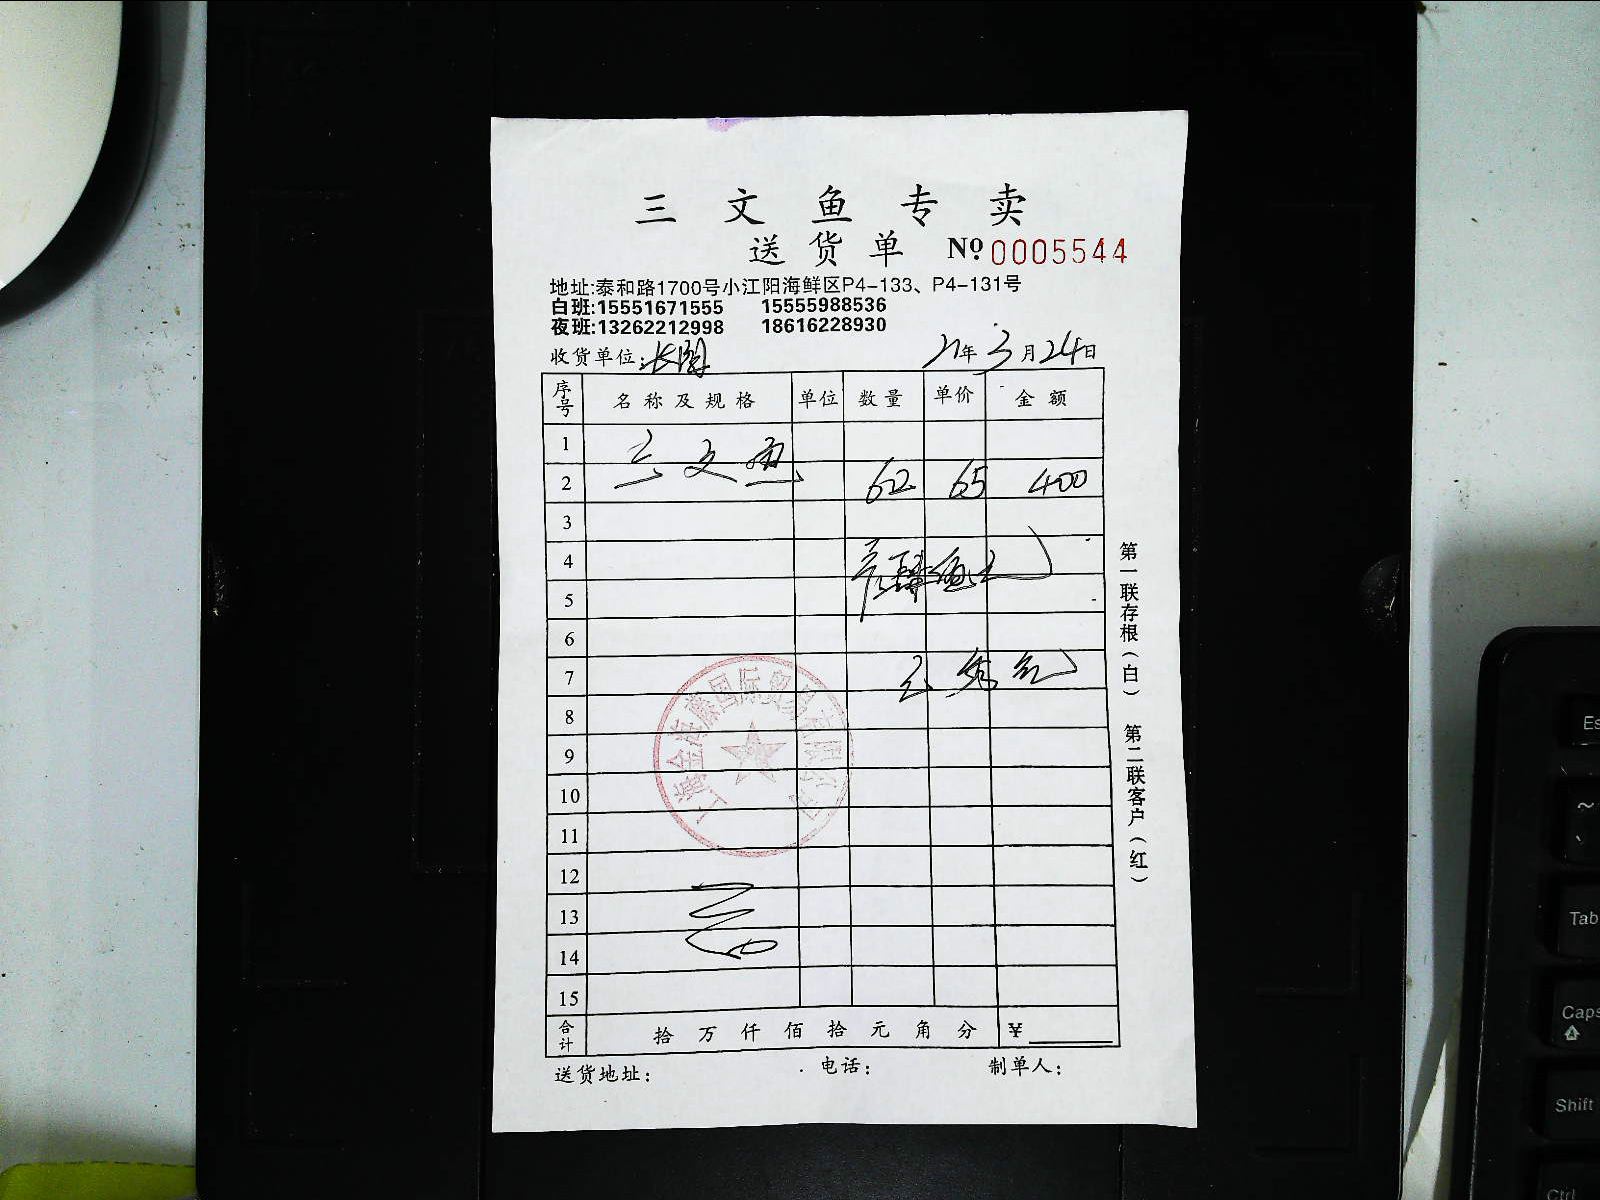 三文鱼专卖
送货单 № 0005544
地址:泰和路1700号小江阳海鲜区P4-133、P4-131号
白班:15551671555 15555988536
夜班:13262212998 18616228930
收货单位: 21年3月24日
序号 名称及规格 单位 数量 单价 金额
1
三文鱼
2 62 65 400
3
4
5
6
7
8
9
10
11
12
13
14
15
合计 拾万仟佰拾元角分 ¥
送货地址: 电话: 制单人:
第一联存根(白) 第二联客户(红)
国际贸易有限公司
Esc
~
Tab
Caps
Shift
Ctrl